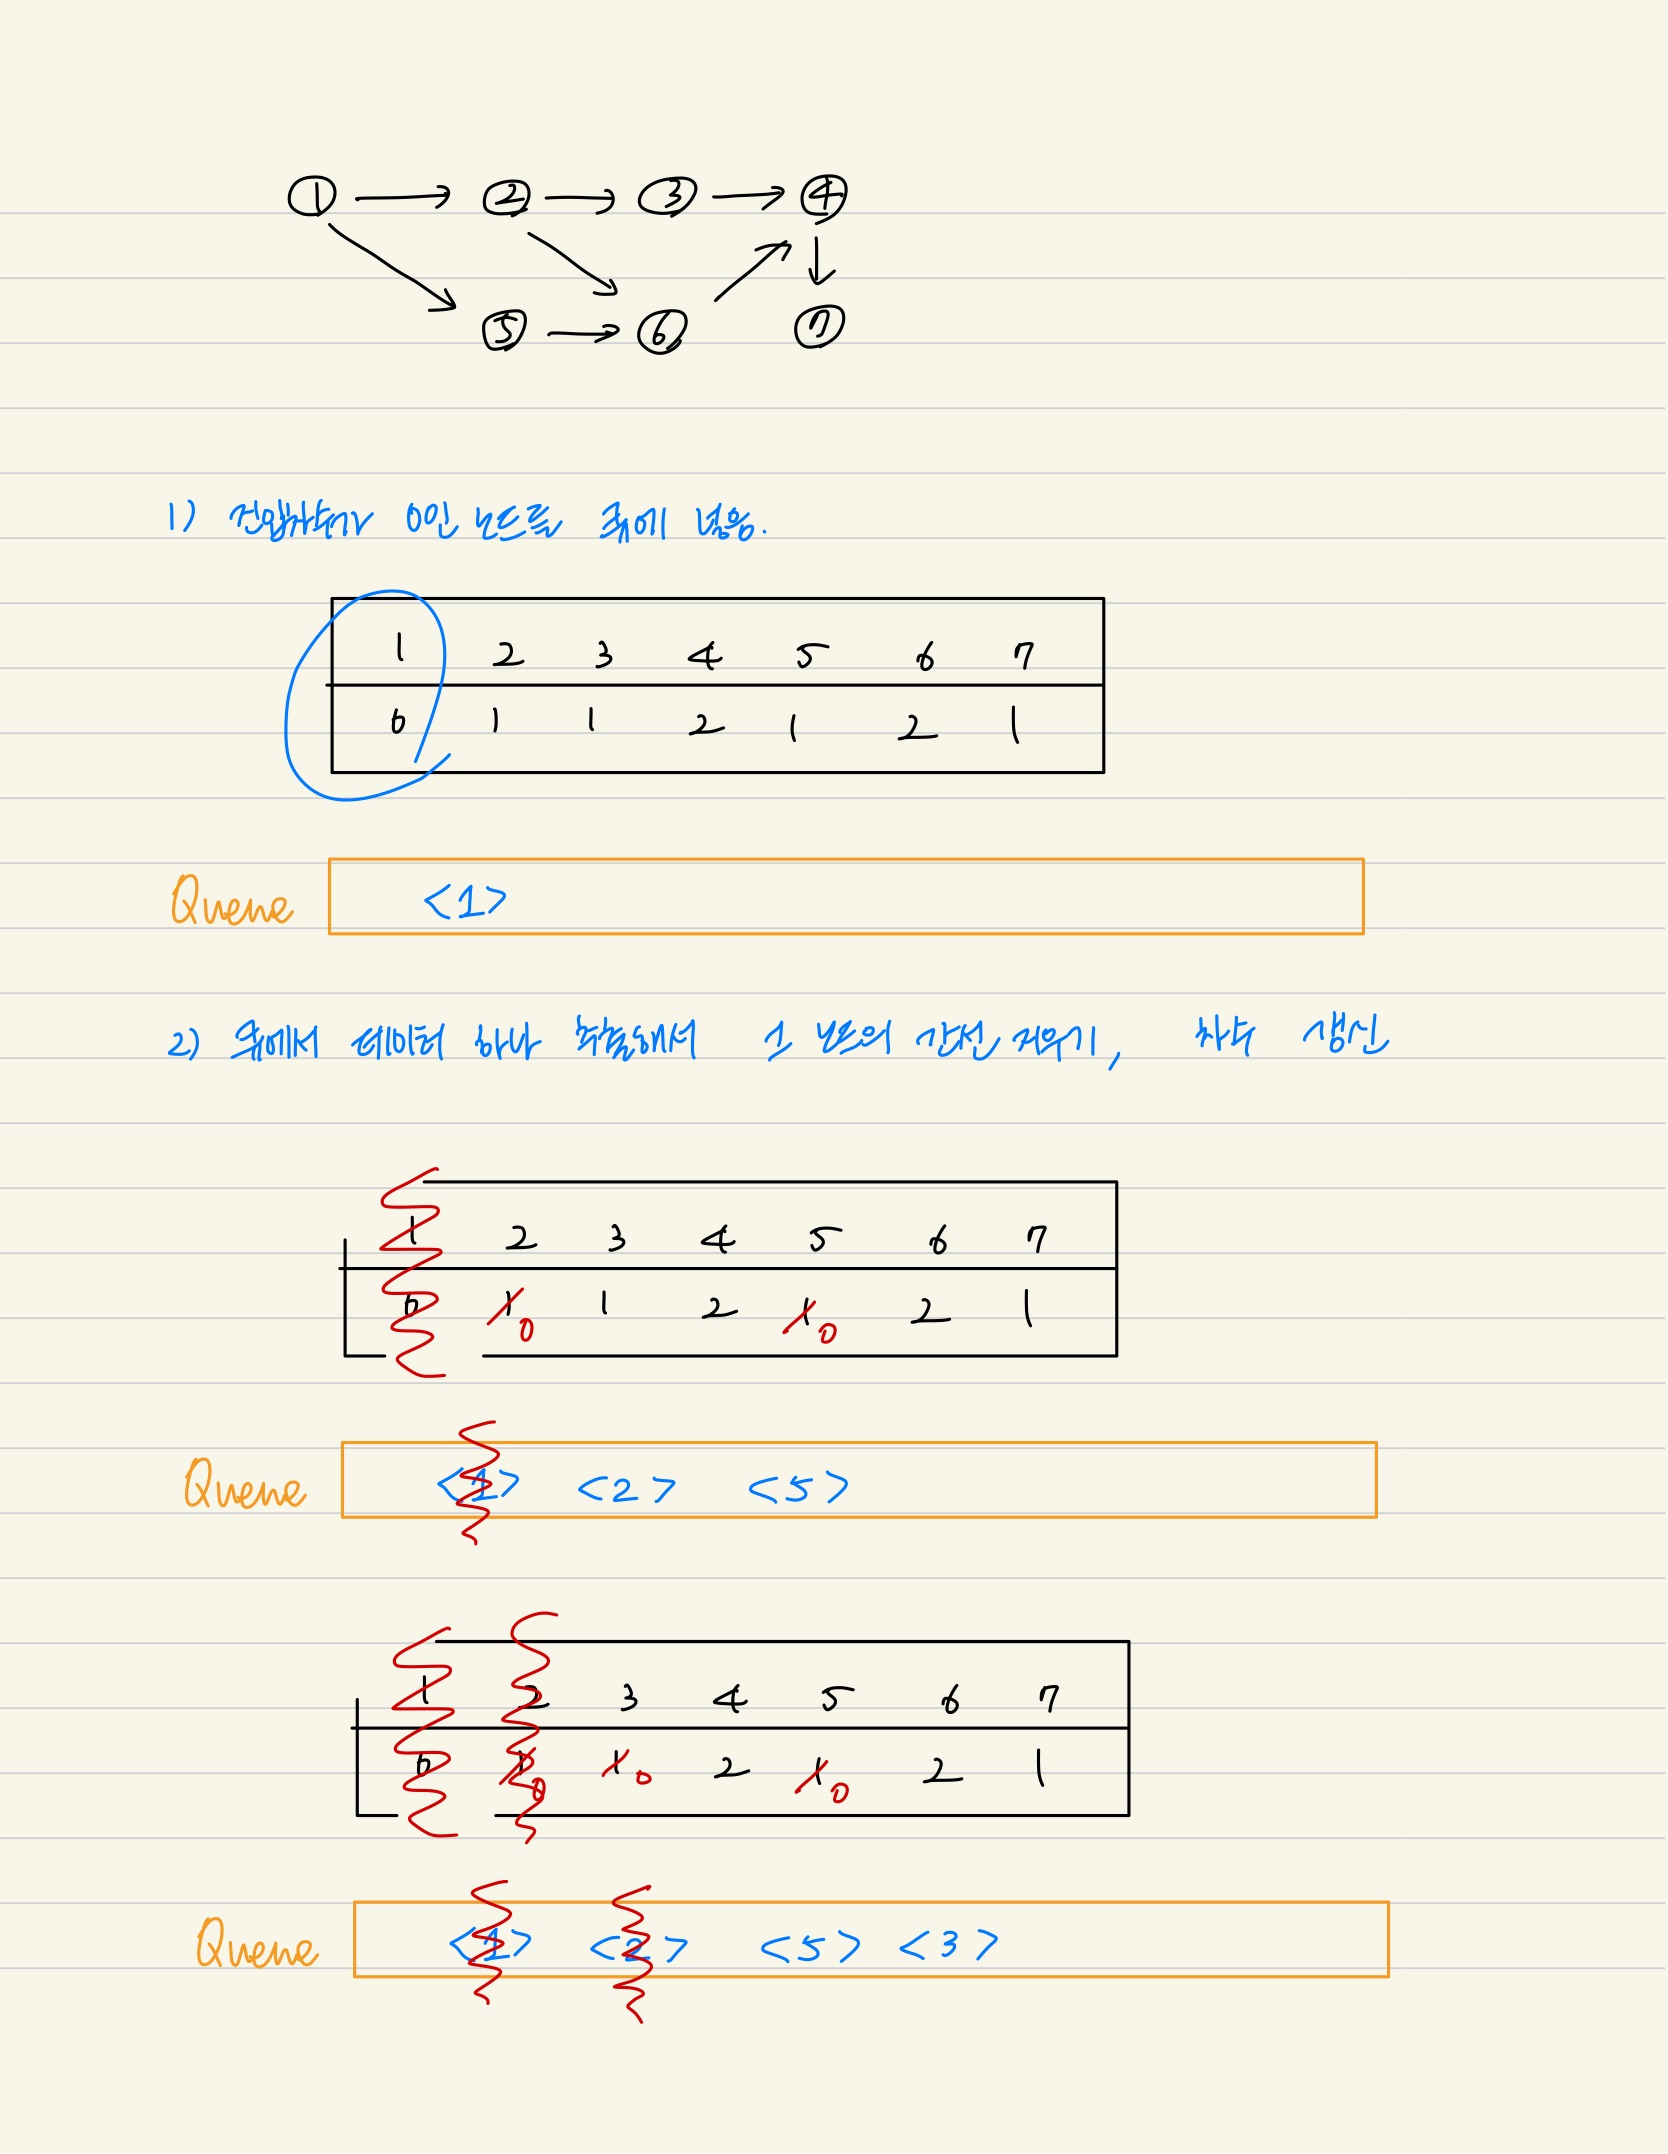 1 2 3 4
5 6 7
1) 진입차수가 0인 노드를 큐에 넣음.
1 2 3 4 5 6 7
0 1 1 2 1 2 1
Queue <1>
2) 큐에서 데이터 하나 추출해서 그 노드의 간선 지우기, 차수 갱신
1 2 3 4 5 6 7
0 1 0 1 2 1 0 2 1
Queue <1> <2> <5>
1 2 3 4 5 6 7
0 1 0 1 0 2 1 0 2 1
Queue <1> <2> <5> <3>